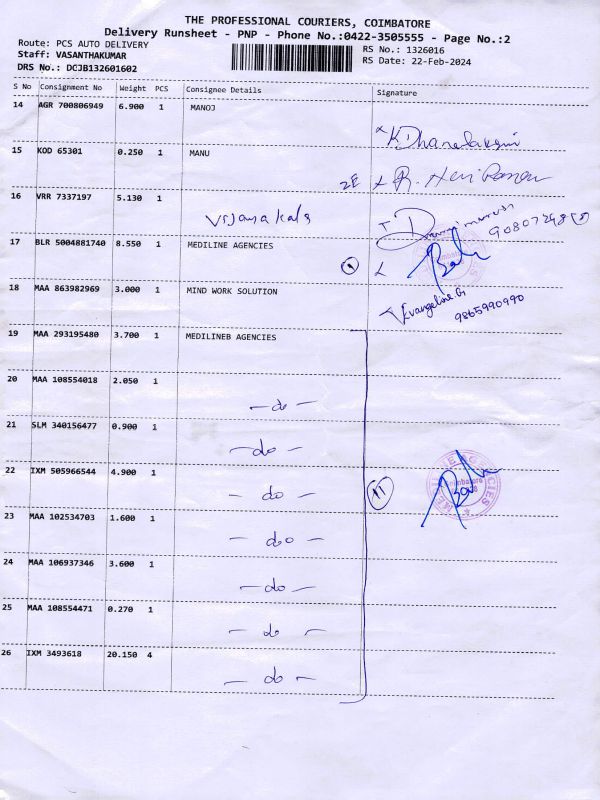 THE PROFESSIONAL COURIERS, COIMBATORE
Delivery Runsheet - PNP - Phone No.:0422-3505555 - Page No.:2
Route: PCS AUTO DELIVERY
RS No.: 1326016
Staff: VASANTHAKUMAR
RS Date: 22-Feb-2024
DRS No.: DCJB132601602
S No Consignment No Weight PCS Consignee Details Signature
14 AGR 700806949 6.900 1 MANOJ
15 KOD 65301 0.250 1 MANU
16 VRR 7337197 5.130 1
17 BLR 5004881740 8.550 1 MEDILINE AGENCIES
18 MAA 863982969 3.000 1 MIND WORK SOLUTION
Evangeline.G
9865990990
19 MAA 293195480 3.700 1 MEDILINEB AGENCIES
20 MAA 108554018 2.050 1
- do -
21 SLM 340156477 0.900 1
- do -
22 IXM 505966544 4.900 1
- do - 11
23 MAA 102534703 1.600 1
- do -
24 MAA 106937346 3.600 1
- do -
25 MAA 108554471 0.270 1
- do -
26 IXM 3493618 20.150 4
- do -